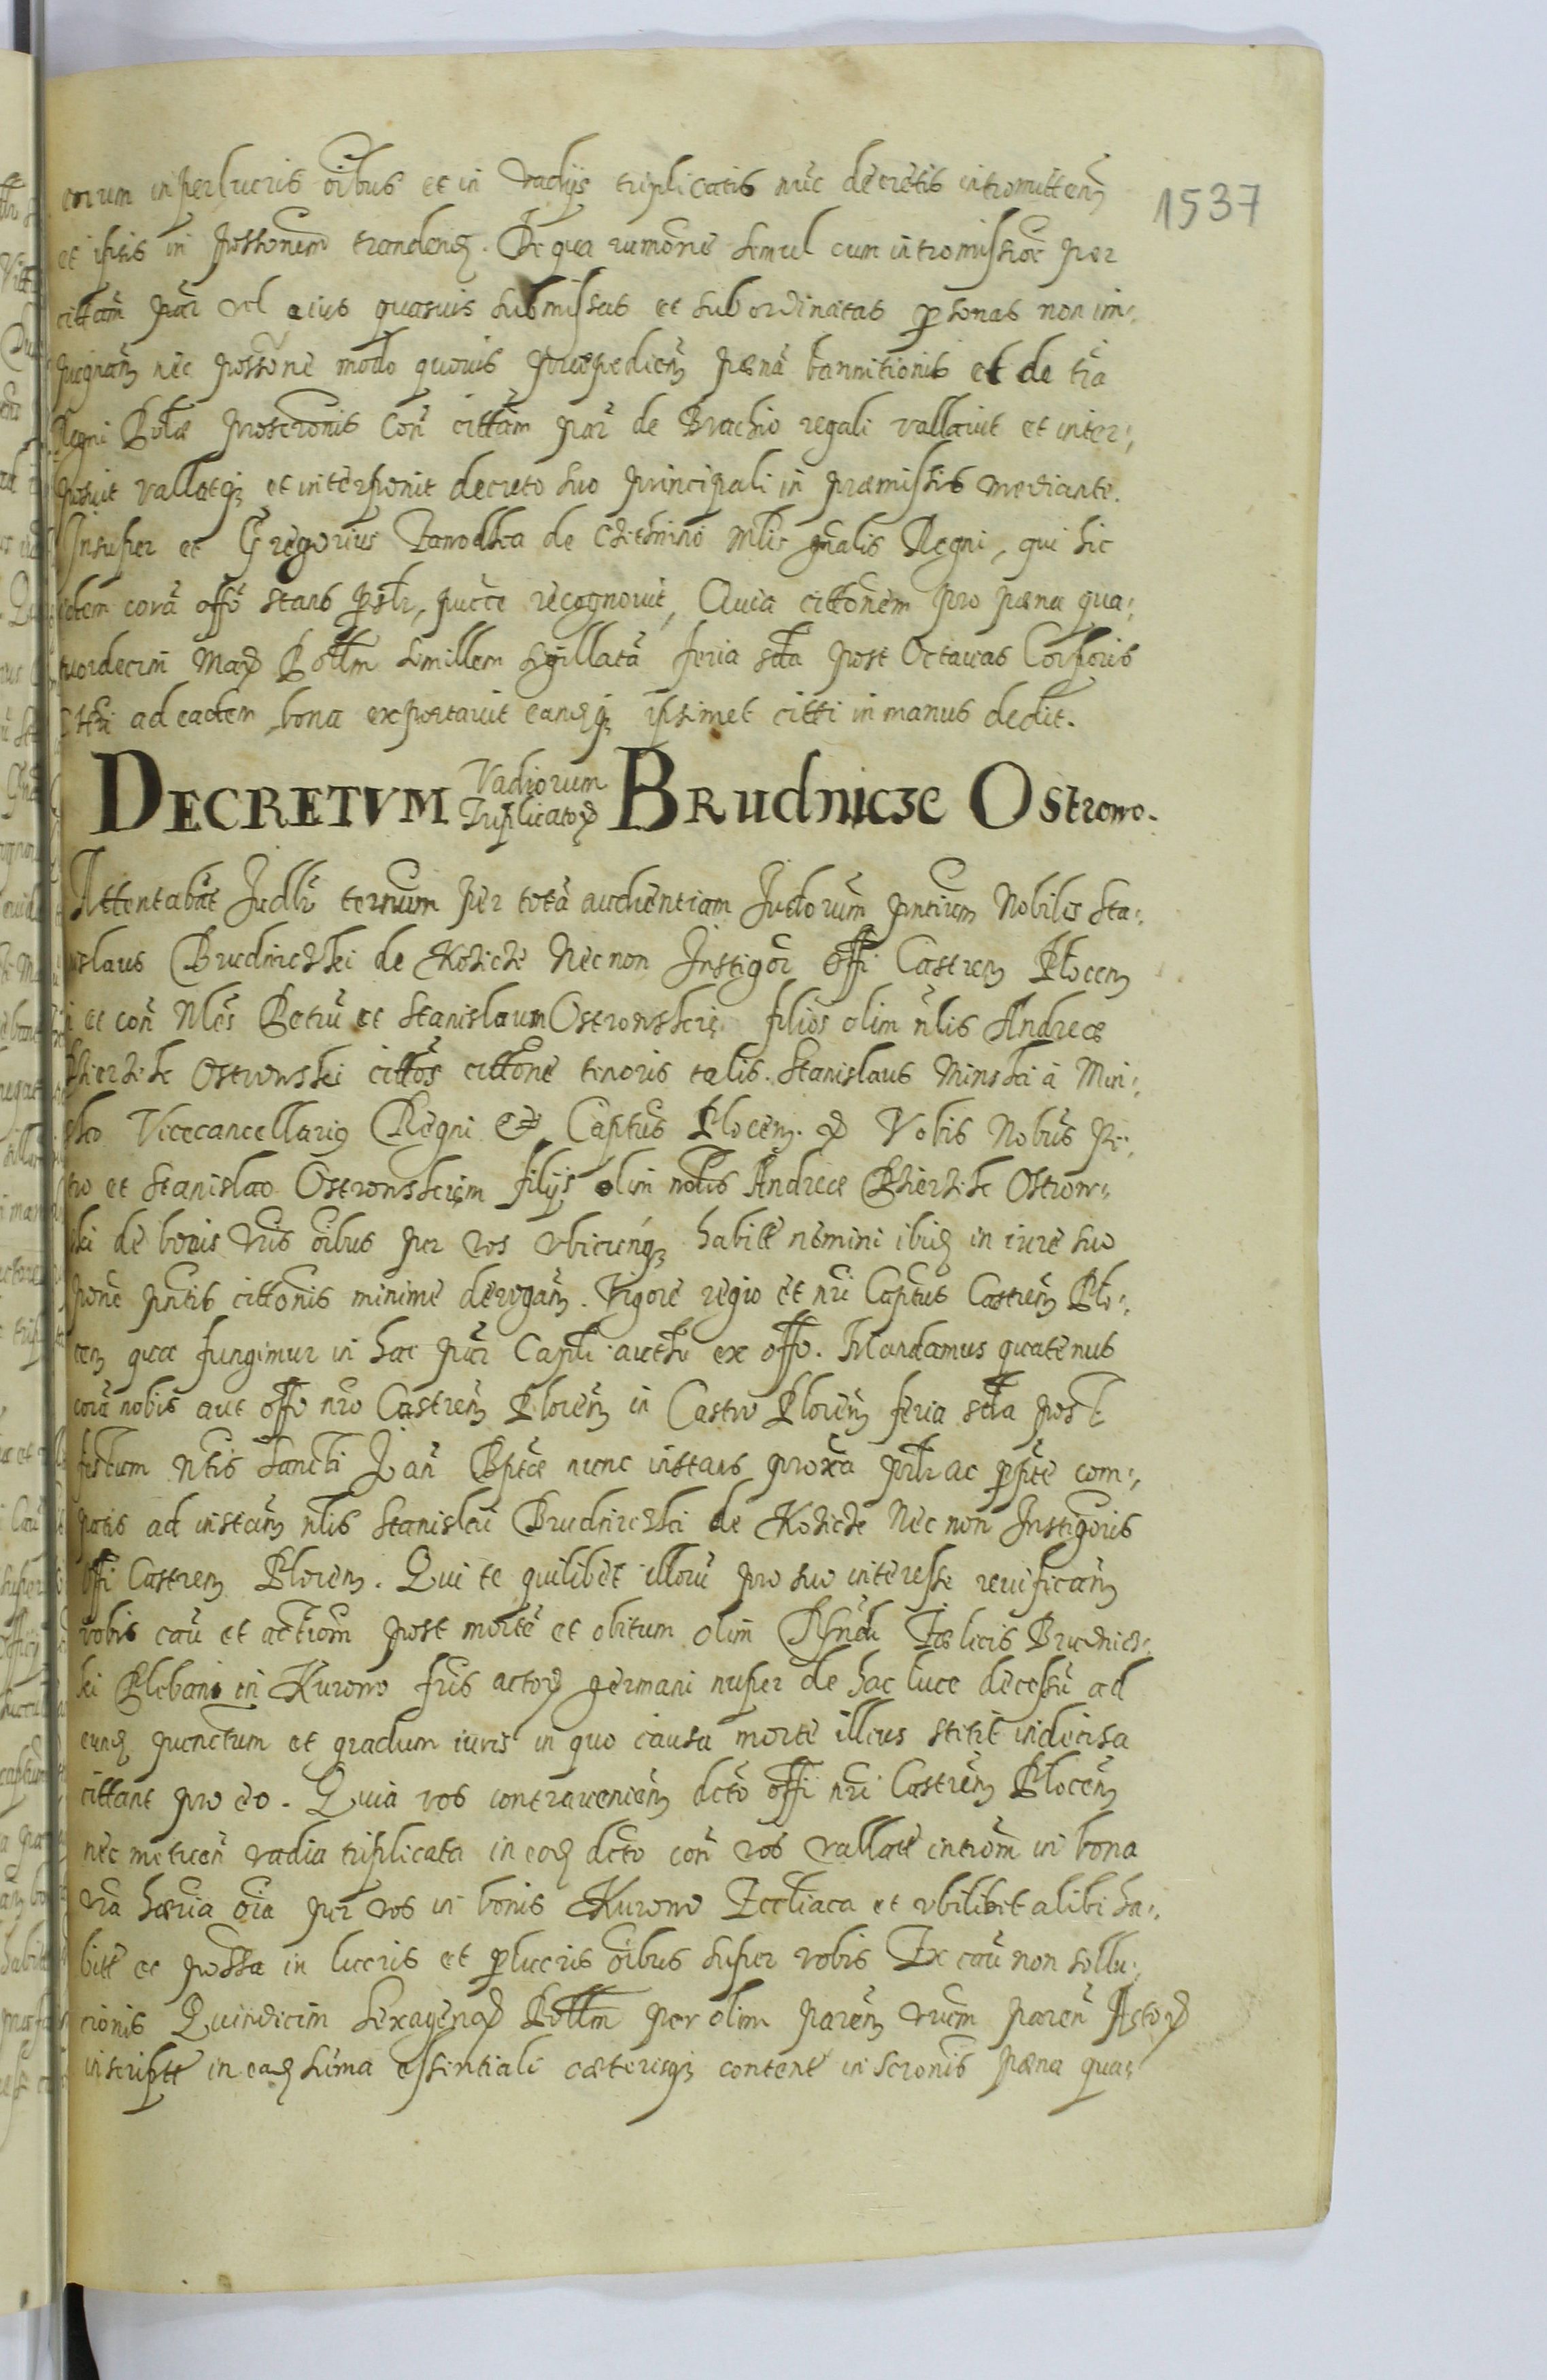 eorum in perlucris oibus et in vadijs triplicatis nuc decretis intromitten
1537
et ipsis in possonem tranden. De qua rumone simul cum intromissioe per
cittam par vel eius quasuis submissas et subordinatas psonas non im:
pugnan nec possone modo quouis praepedien paena bannitionis et de tra
Regni Polae proscronis con cittam par de Brachio regali vallauit et inter:
posuit vallatq et interponit decreto suo principali in praemissis mediante.
Insuper et Gregorius de mlis gnalis Regni, qui hic
idem cora offo stans pstr, puce recognouit, Quia cittonem pro paena qua:
tuordecim Mar Pollm similem sigillata feria scda post Octauas Corporis
Chri ad eadem bona exportauit eandq ipsimet citti in manus dedit.
DECRETVM Vadiorum Triplicator BRudnicze Ostrowo.
Attentabat Judlr ternum per tota audientiam Judorum pntium Nobilis Sta:
nislaus Brudniczki de Kozicze Nec non Instigor Offi Castren Plocen
et con Nles Petru et Stanislaum Ostrowskie filios olim nlis Andreae
Ostrowski cittos cittone tenoris talis. Stanislaus Minski a Min:
sko Vicecancellarius Regni et Captus Plocen. Vobis Nobus Pe:
tro et Stanislao Ostrowskiem filijs olim nobis Andreae Ostrow:
ski de bonis vris oibus per vos vbicunq habitt nemini ibid in iure suo
pone pntis cittonis minime derogan. Vigore regio et nri Captus Castren Plo:
cen qua fungimur in hac par Capli aucthe ex offo. Mandamus quatenus
cora nobis aut offo nro Castren Plocen in Castro Plocen feria scda post
festum Ntis Sancti Joan Bptae nunc instans proxa prlr ac ppte com:
patis ad instam nlis Stanislai Brudniczki de Kozicze Nec non Instigoris
Offi Castren Plocen. Qui te quilibet illoru pro suo interesse reuifican
vobis cau et actiom post morte et obitum olim Rndi Faelicis Brudnicz:
ki Plebani in Kurowo fris actor germani nuper de hac luce decessu ad
eund punctum et gradum iuris in quo causa morte illius stetit indecisa
cittant pro eo. Quia vos contrauenien dcto offi nri Castren Plocen
nec metuen vadia triplicata in eod dcto con vos vallata introm in bona
vra haeria oia per vos in bonis Kurowo Eccliaca et vbilibet alibi ha:
bitt et possa in lucris et plucris oibus super vobis Ex cau non sollu:
cionis Quindicim sexagenar Pollm per olim paren vrum paren Actor
inscriptt in ead suma essentiali caeterisq content inscronis paena qua: